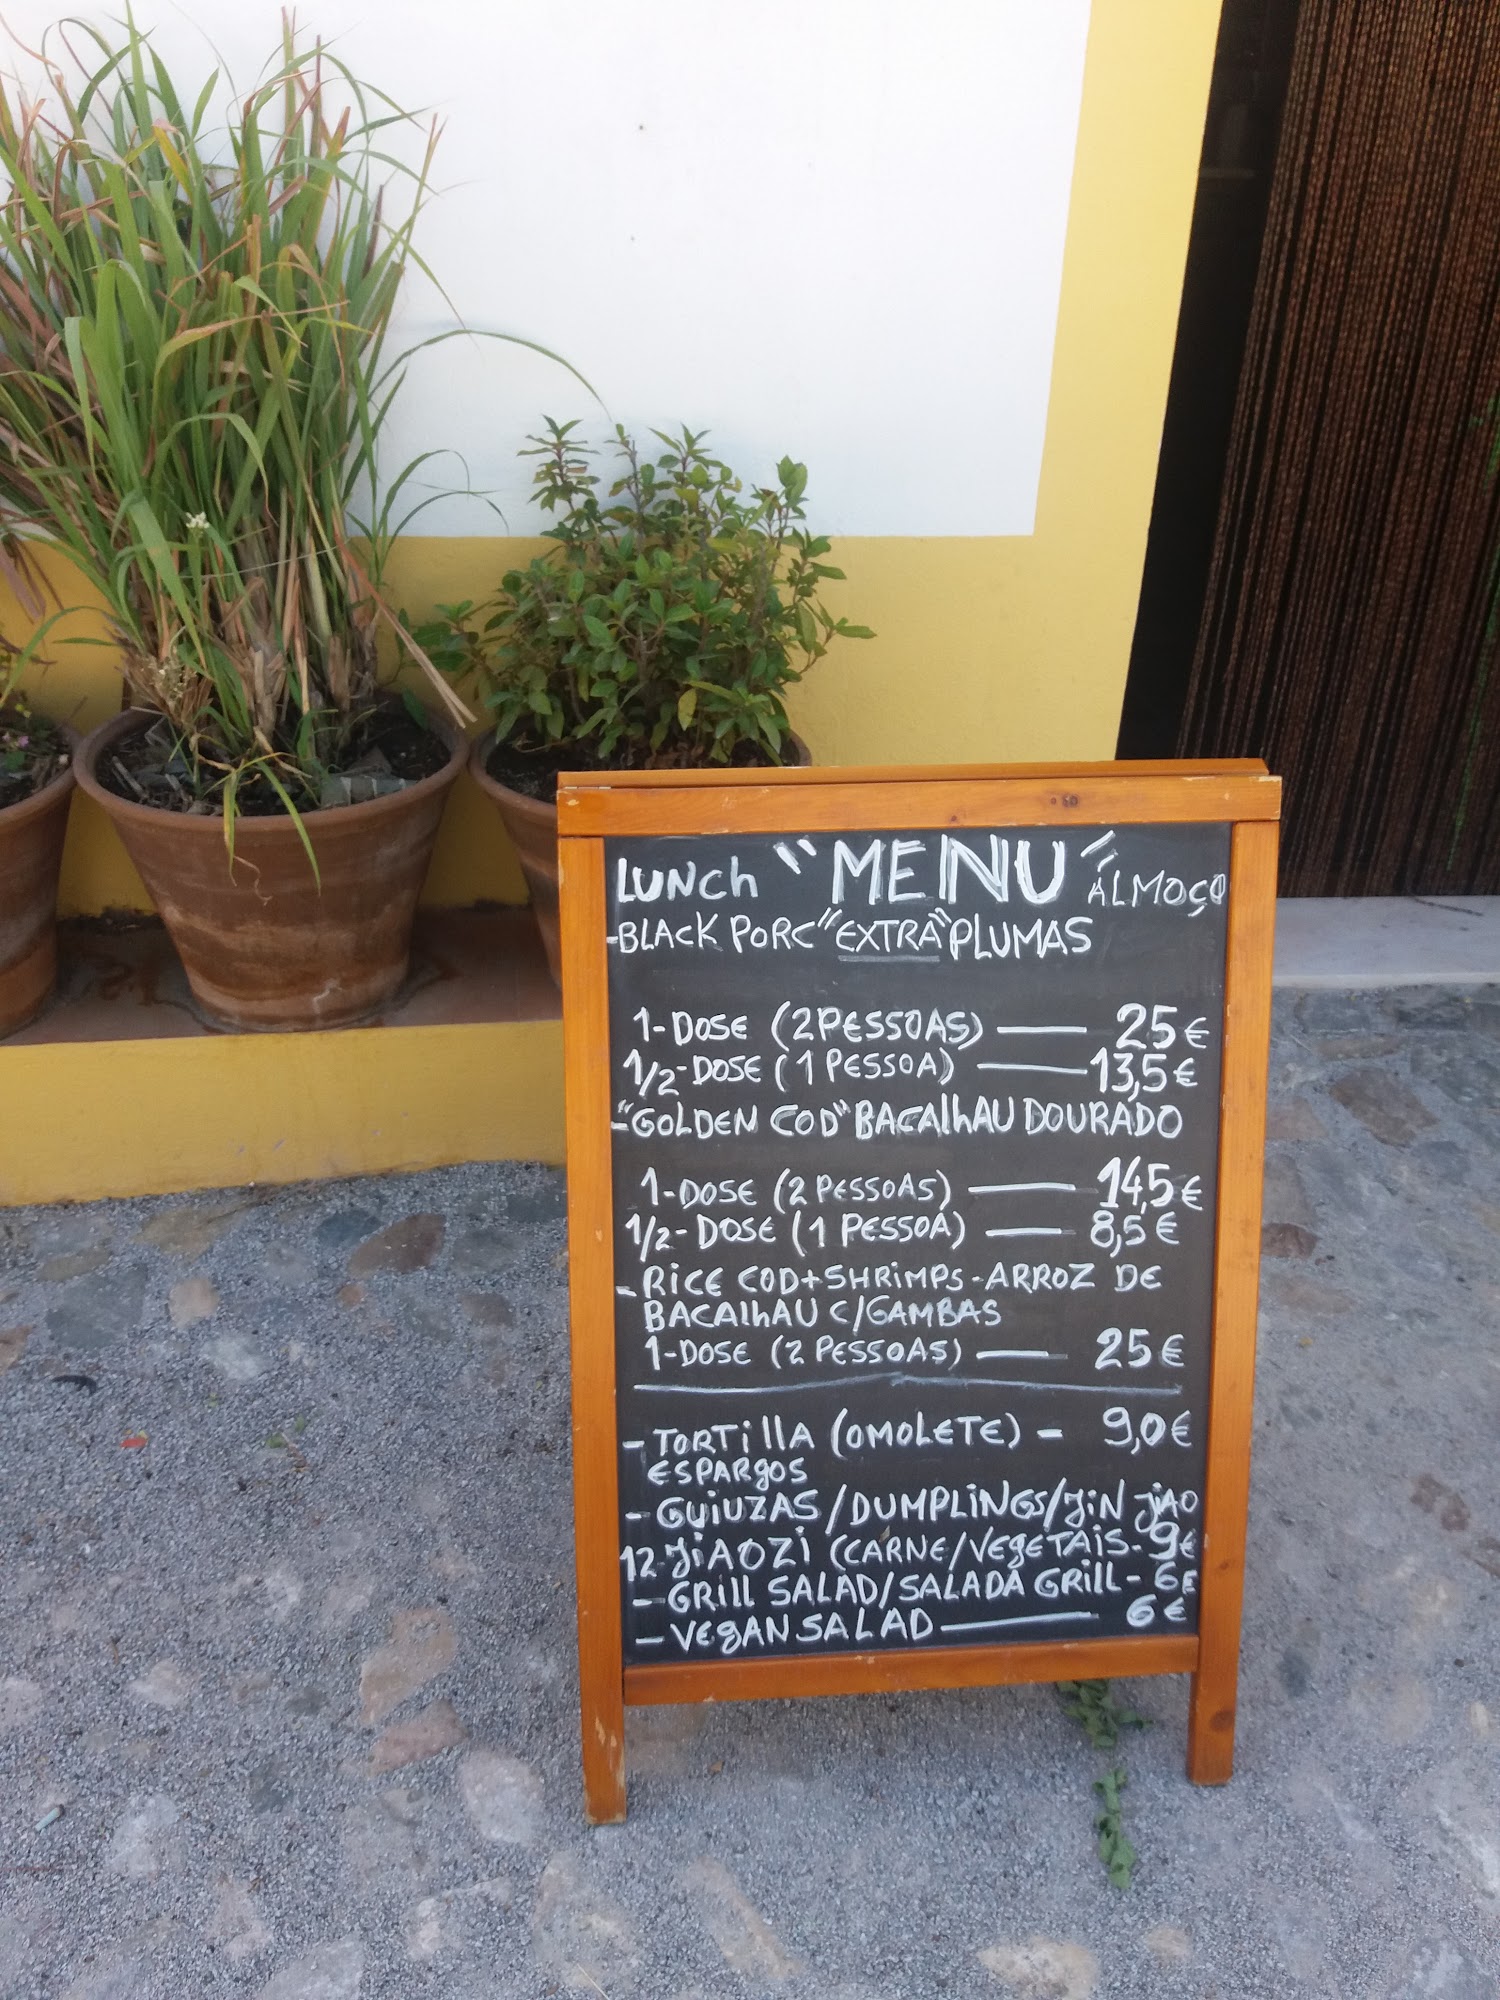 LUNCH "MENU" ALMOÇO
-BLACK PORC "EXTRA" PLUMAS
1-DOSE (2 PESSOAS) — 25€
1/2-DOSE (1 PESSOA) — 13,5€
-"GOLDEN COD" BACALHAU DOURADO
1-DOSE (2 PESSOAS) — 14,5€
1/2-DOSE (1 PESSOA) — 8,5€
- RICE COD+SHRIMPS-ARROZ DE
BACALHAU C/GAMBAS
1-DOSE (2 PESSOAS) — 25€
- TORTILLA (OMOLETE) - 9,0€
ESPARGOS
- GUIUZAS/DUMPLINGS/JIN JIAO
12-JIAOZI (CARNE/VEGETAIS- 9€
- GRILL SALAD/SALADA GRILL- 6€
- VEGAN SALAD — 6€